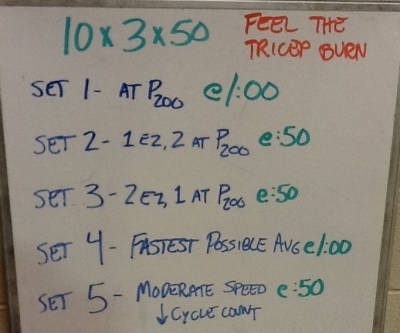 10x3x50
FEEL THE
TRICEP BURN
SET 1- AT P200 @1:00
SET 2- 1EZ, 2 AT P200 @:50
SET 3- 2EZ, 1 AT P200 @:50
SET 4- FASTEST POSSIBLE AVG @1:00
SET 5- MODERATE SPEED @:50
↓CYCLE COUNT